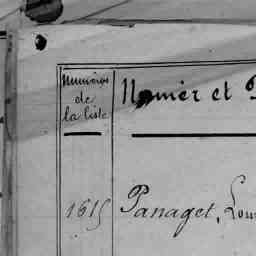 Numéros
de
la liste
Numér et
1615 Panaget,